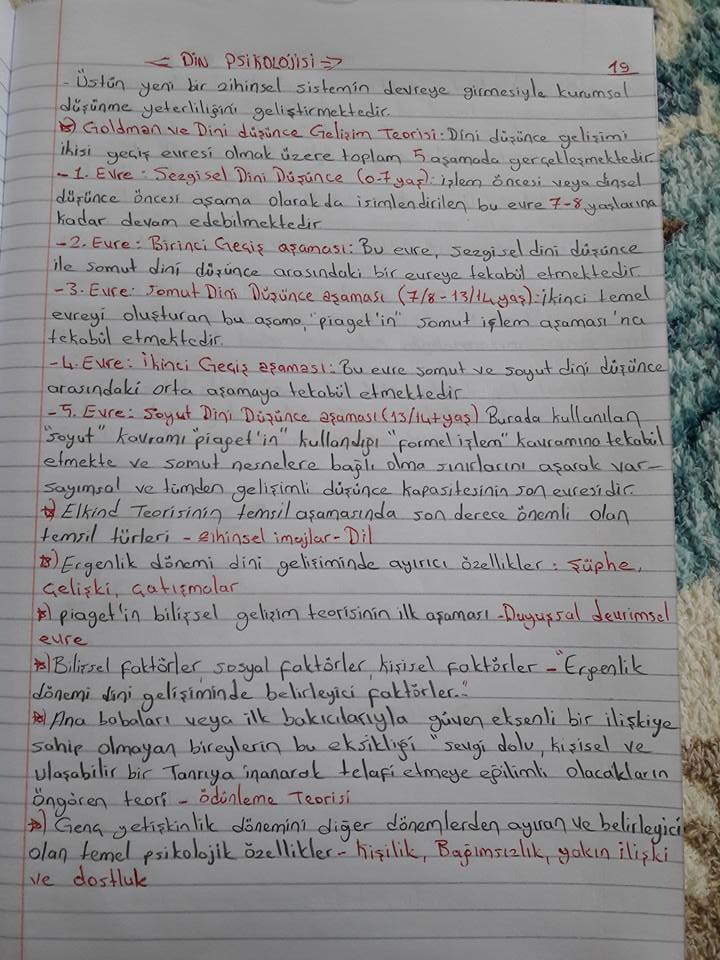 <- DİN PSİKOLOJİSİ => 19
- Üstün yeni bir zihinsel sistemin devreye girmesiyle kurumsal
düşünme yeterliliğini geliştirmektedir.
Goldman ve Dini düşünce Gelişim Teorisi: Dini düşünce gelişimi
ikisi geçiş evresi olmak üzere toplam 5 aşamada gerçekleşmektedir.
- 1. Evre: Sezgisel Dini Düşünce (0-7 yaş): işlem öncesi veya dinsel
düşünce öncesi aşama olarakda isimlendirilen bu evre 7-8 yaşlarına
kadar devam edebilmektedir
- 2. Evre: Birinci Geçiş aşaması: Bu evre, sezgisel dini düşünce
ile somut dini düşünce arasındaki bir evreye tekabül etmektedir.
- 3. Evre: Somut Dini Düşünce aşaması (7/8-13/14 yaş): ikinci temel
evreyi oluşturan bu aşama, "piaget'in" somut işlem aşaması'na
tekabül etmektedir.
- 4. Evre: İkinci Geçiş aşaması: Bu evre somut ve soyut dini düşünce
arasındaki orta aşamaya tekabül etmektedir
- 5. Evre: Soyut Dini Düşünce aşaması (13/14+yaş) Burada kullanılan
"soyut" kavramı "piaget'in" kullandığı "formel işlem" kavramına tekabül
etmekte ve somut nesnelere bağlı olma sınırlarını aşarak var-
sayımsal ve tümden gelişimli düşünce kapasitesinin son evresidir.
Elkind Teorisinin temsil aşamasında son derece önemli olan
temsil türleri - zihinsel imajlar - Dil
Ergenlik dönemi dini gelişiminde ayırıcı özellikler: şüphe,
çelişki, çatışmalar
piaget'in bilişsel gelişim teorisinin ilk aşaması - Duyuşsal devrimsel
evre
Bilişsel faktörler, sosyal faktörler, kişisel faktörler - "Ergenlik
dönemi dini gelişiminde belirleyici faktörler."
Ana babaları veya ilk bakıcılarıyla güven eksenli bir ilişkiye
sahip olmayan bireylerin bu eksikliği "sevgi dolu, kişisel ve
ulaşabilir bir Tanrıya inanarak telafi etmeye eğilimli olacakların
öngören teori - ödünleme Teorisi
Genç yetişkinlik dönemini diğer dönemlerden ayıran ve belirleyici
olan temel psikolojik özellikler - kişilik, Bağımsızlık, yakın ilişki
ve dostluk